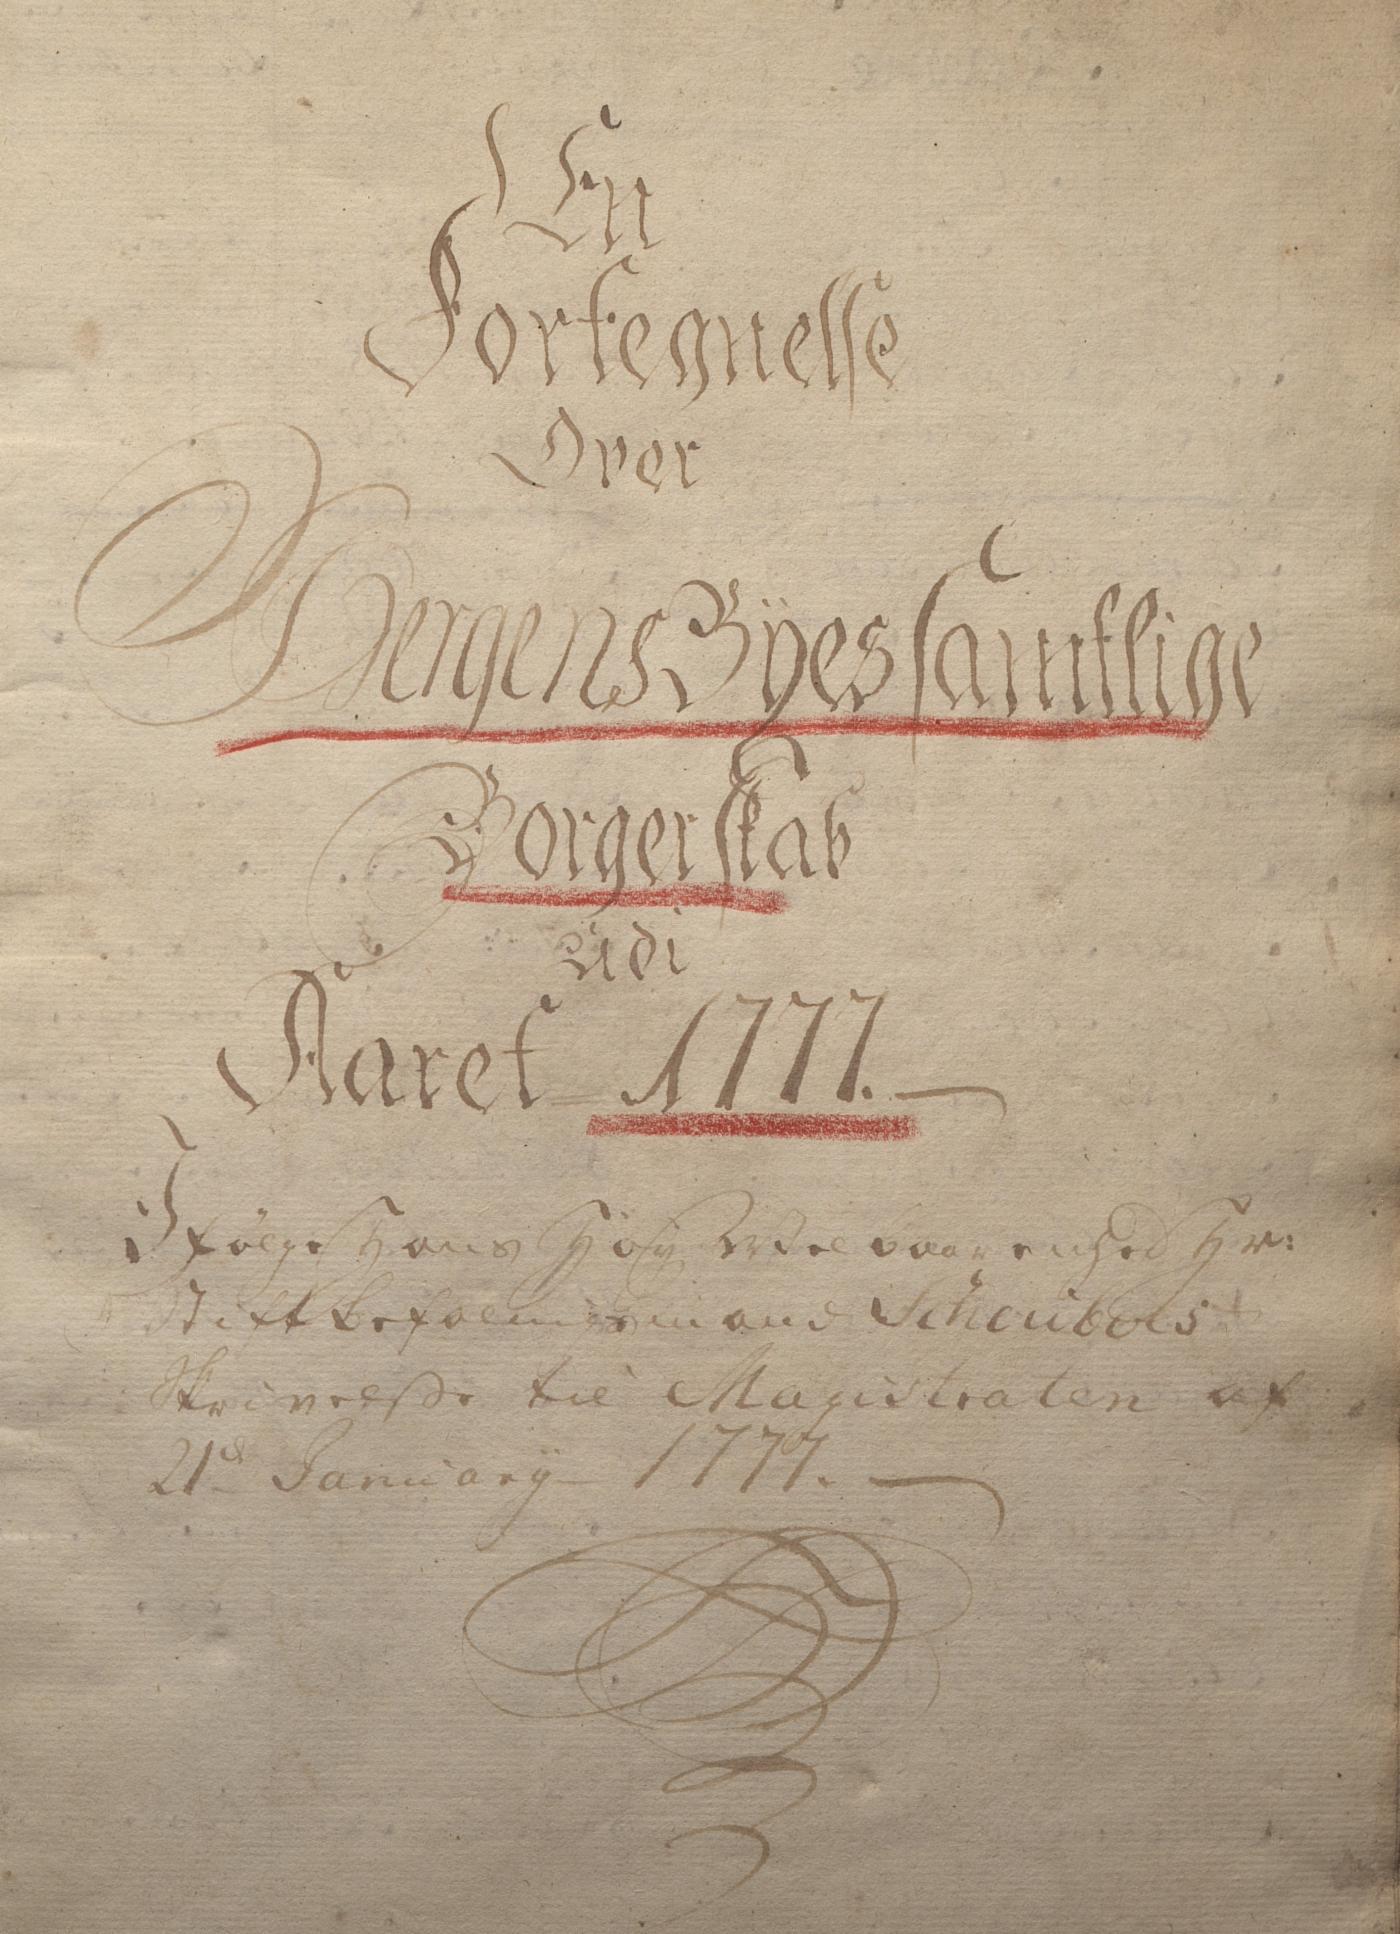 En
Fortegnelse
Over
Bergens Bÿes samtlige
Borgerskab
udi
Aaret 1777.
Ifølge Hans Høy Velbaarenhed Hr:
Stiftbefalingsmand Scheubois
Skrivelsse til Magistraten af
21de Januarÿ 1777.